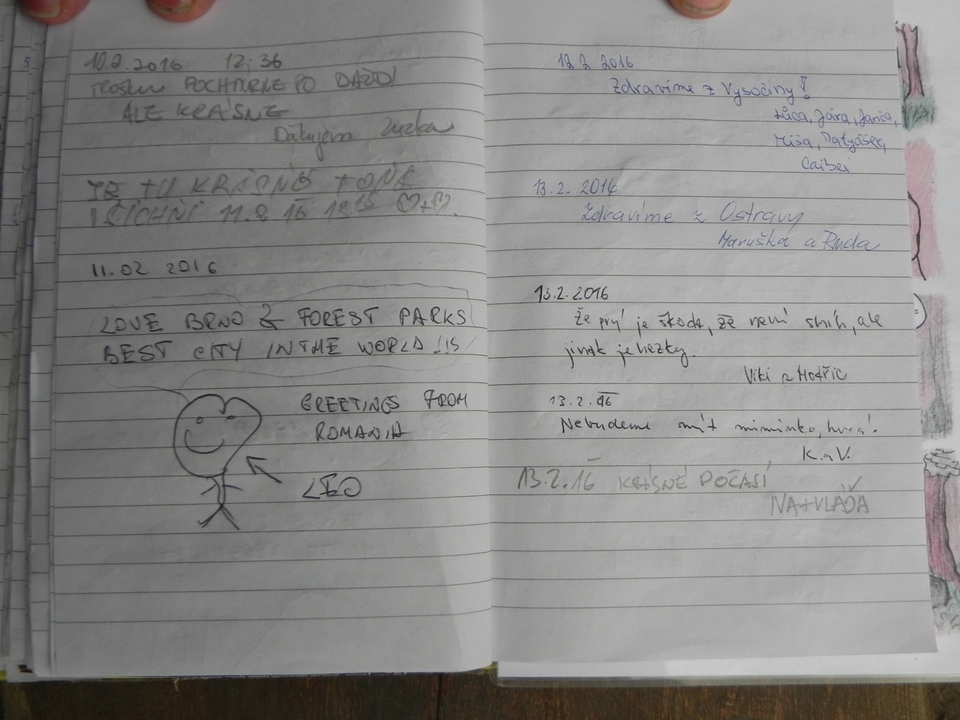 10.2.2016 12:36
TROŠKU POCHMÚRNE PO DAŽDI
ALE KRÁSNE
Ďakujem Zuzka
JE TU KRÁSNĚ
11.2.16
11.02 2016
LOVE BRNO & FOREST PARKS
BEST CITY IN THE WORLD !!
GREETINGS FROM
ROMANIA
LEO
12.2 2016
Zdravíme z Vysočiny!
Lůca, Jára, Janča,
Míša,
13.2. 2016
Zdravíme z Ostravy
Maruška a Ruda
13.2.2016
Že prý je škoda, že není sníh, ale
jinak je hezky.
Viki z Hořic
13.2. 16
Nebudeme mít miminko, hurá!
K. a V.
13.2.16 KRÁSNÉ POČASÍ
NAĎA + VLAĎA